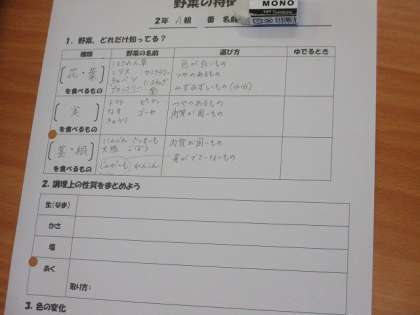 野菜の特徴
MONO
2年 A組 番 名前
1. 野菜、どれだけ知ってる?
種類 野菜の名前 選び方 ゆでるとき
花・葉
を食べるもの
ほうれん草
レタス
キャベツ
ブロッコリー
色が良いもの
つやのあるもの
みずみずしいもの
実
を食べるもの
トマト ピーマン
なす ゴーヤ
きゅうり
つやのあるもの
肉質が固いもの
茎・根
を食べるもの
にんじん さつまいも
大根 ごぼう
じゃがいも れんこん
肉質が固いもの
芽がでていないもの
2. 調理上の性質をまとめよう
生(なま)
かさ
塩
あく
取り方:
3. 色の変化